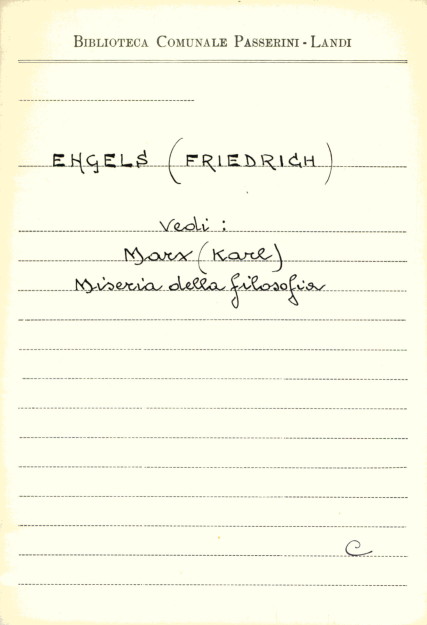 BIBLIOTECA COMUNALE PASSERINI - LANDI
ENGELS (FRIEDRICH)
Vedi :
Marx (Karl)
Miseria della filosofia
C